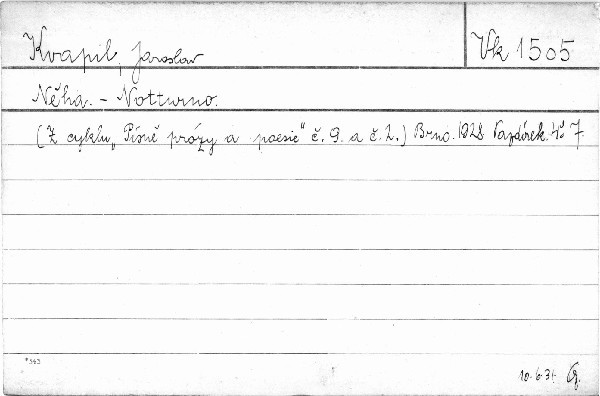 Kvapil, Jaroslav
Vk 1505
Něha. - Notturno.
(Z cyklu „Písně prózy a poesie" č. 9. a č. 2.) Brno. 1928. Pazdírek. 4° 7
*343
10.6.31.